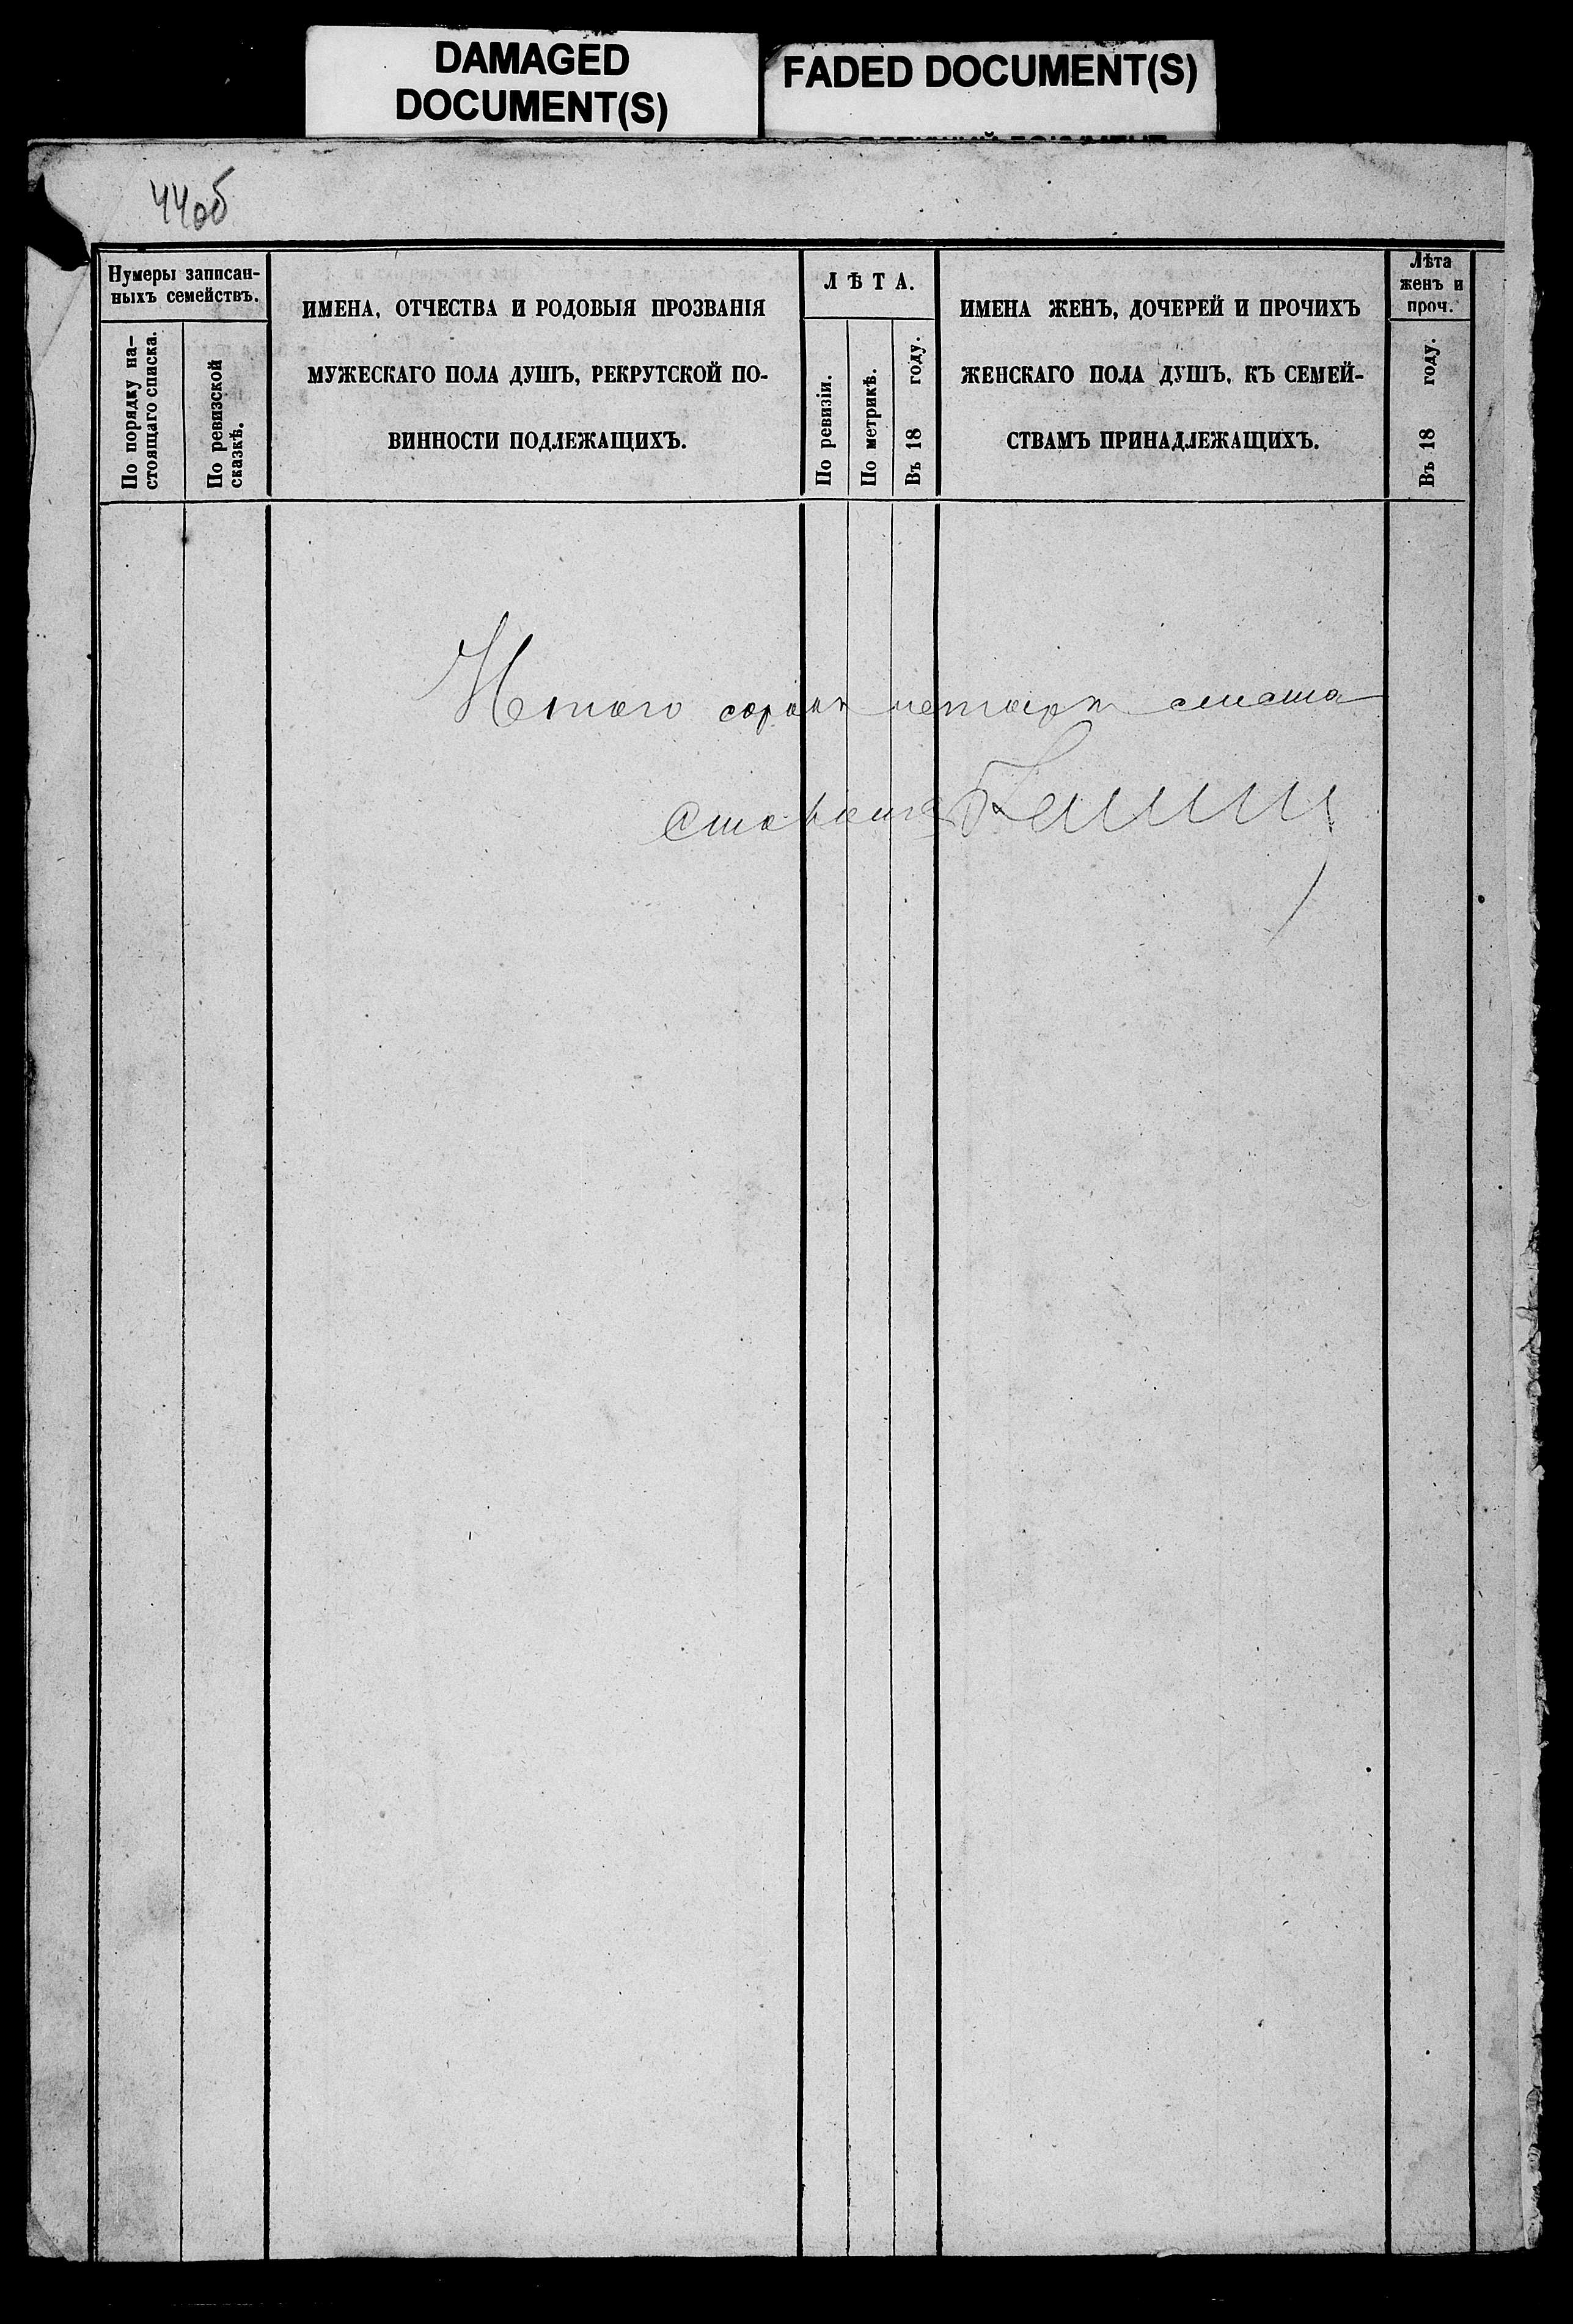 DAMAGED
DOCUMENT(S)
FADED DOCUMENT(S)
44об
Нумеры записан-
ныхъ семействъ.
По порядку на-
стоящаго списка.
По ревизской
сказкѣ.
ИМЕНА, ОТЧЕСТВА И РОДОВЫЯ ПРОЗВАНІЯ
МУЖЕСКАГО ПОЛА ДУШЪ, РЕКРУТСКОЙ ПО-
ВИННОСТИ ПОДЛЕЖАЩИХЪ.
ЛѢТА.
По ревизіи.
По метрикѣ.
Въ 18 году.
ИМЕНА ЖЕНЪ, ДОЧЕРЕЙ И ПРОЧИХЪ
ЖЕНСКАГО ПОЛА ДУШЪ, КЪ СЕМЕЙ-
СТВАМЪ ПРИНАДЛЕЖАЩИХЪ.
Лѣта
женъ и
проч.
Въ 18 году.
сорокъ четыре листа